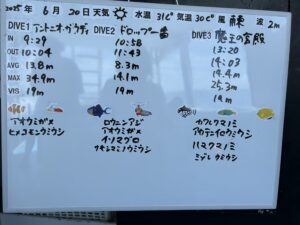 2025年 6月 20日 天気 水温 31℃ 気温 30℃ 風 南東 波 2m
DIVE1 アントニオ・ガウディ
IN 9:29
OUT 10:04
AVG 13.8m
MAX 34.9m
VIS 19m
アオウミガメ
ヒメコモンウミウシ
DIVE2 ドロップ一番
10:58
11:43
8.3m
14.1m
19m
ロウニンアジ
アオウミガメ
イソマグロ
DIVE3 魔王の宮殿
13:20
14:03
14.4m
25.3m
19m
カクレクマノミ
ハマクマノミ
ミゾレウミウシ